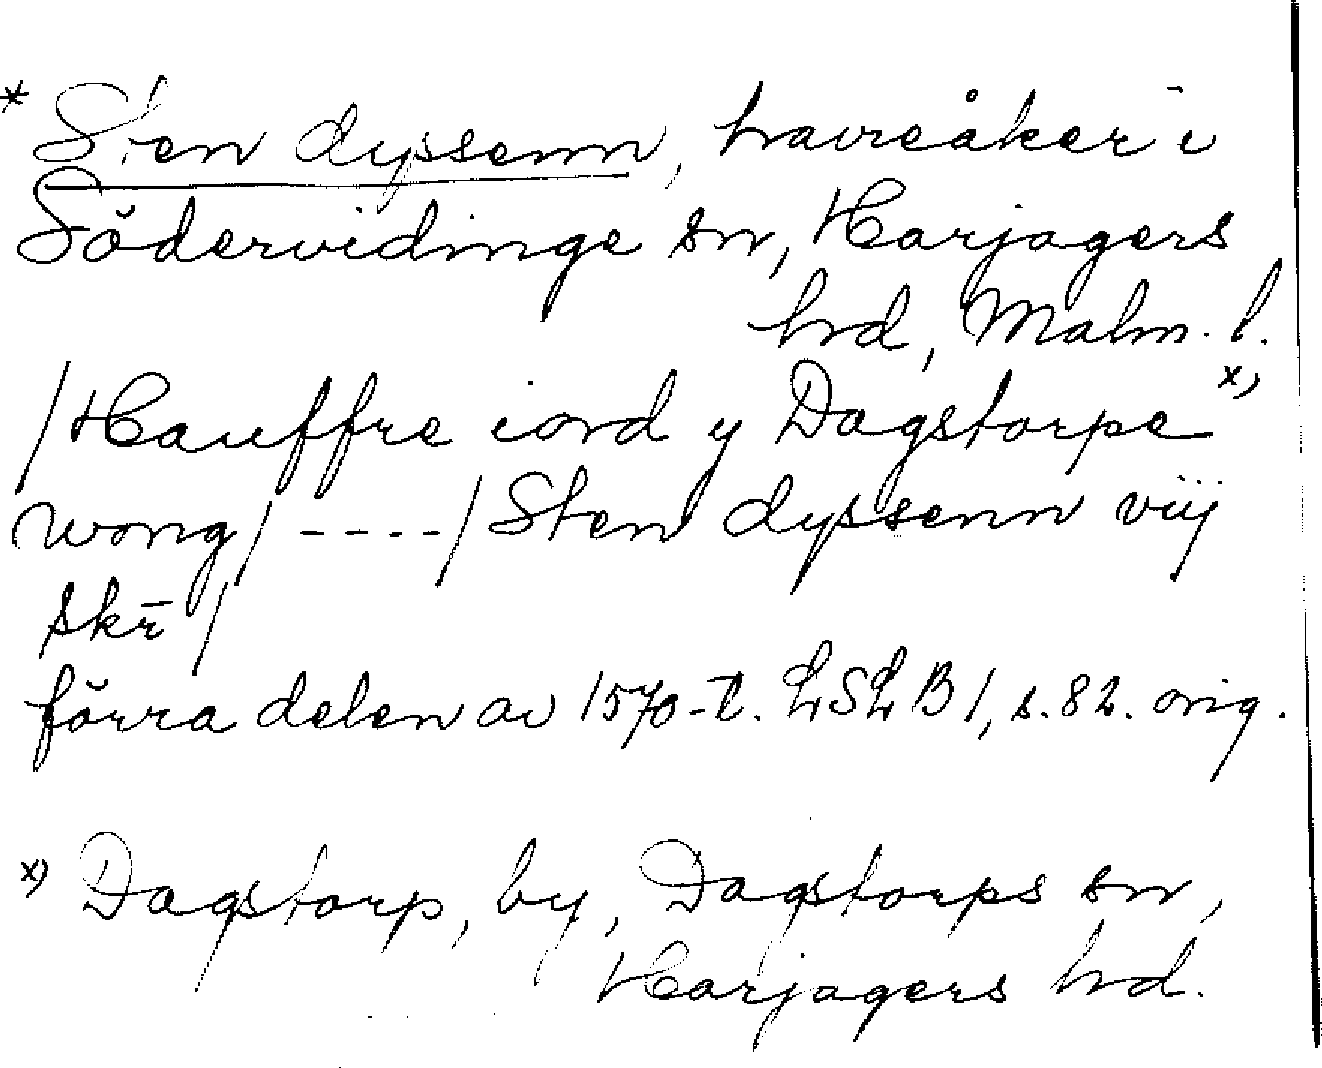 * Sten dyssenn, havreåker i
Södervidinge sn, Harjagers
hrd, Malm. l.
/Hauffre iord y Dagstorpe x)
wong/ ----/ Sten dyssenn vij
skr̄ /
förra delen av 1570-t. LSLB 1, s. 82. orig.
x) Dagstorp, by, Dagstorps sn,
Harjagers hrd.